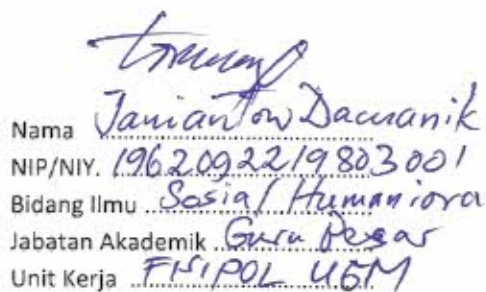 Nama Janianton Damanik
NIP/NIY. 1962092219803001
Bidang Ilmu Sosial Humaniora
Jabatan Akademik Guru Besar
Unit Kerja FISIPOL UGM